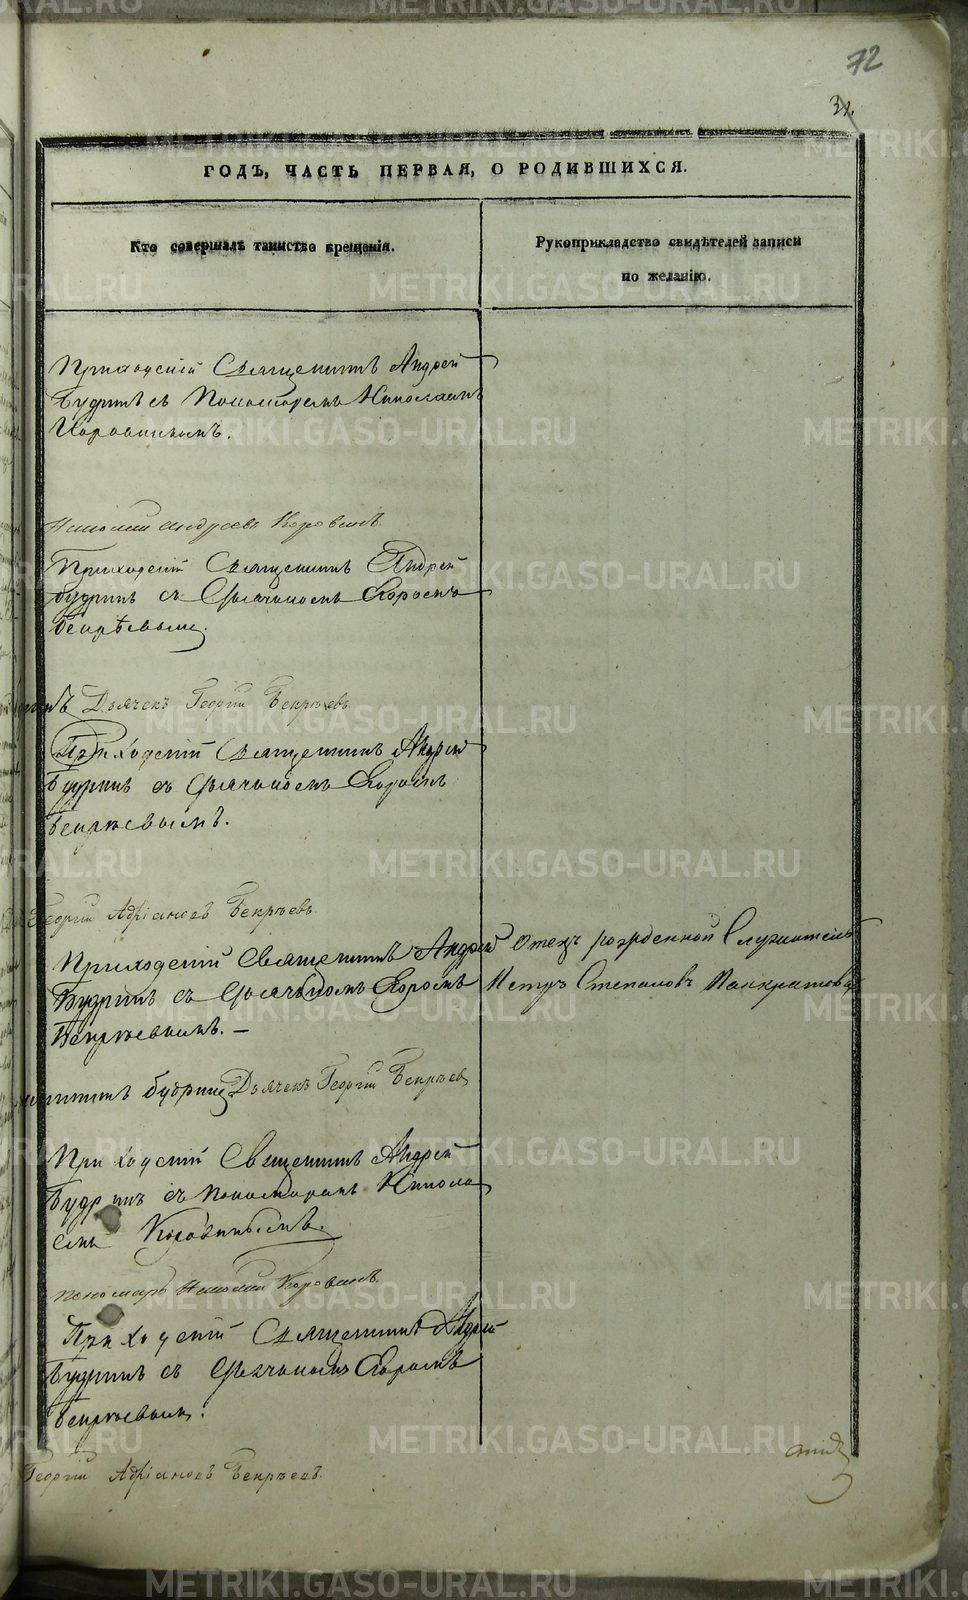 72
31.
ГОДЪ, ЧАСТЬ ПЕРВАЯ, О РОДИВШИХСЯ.
Кто совершалъ таинство крещенія.
Рукоприкладство свидѣтелей записи
по желанію.
Приходскій Священникъ Андрей
Будринъ съ Пономаремъ Николаемъ
Коровинымъ.
Николай Андреевъ Коровинъ
Приходскій Священникъ Андрей
Будринъ съ Дьячкомъ Егоромъ
Бекрѣевымъ.
Дьячекъ Георгій Бекрѣевъ
Приходскій Священникъ Андрей
Будринъ съ Дьячкомъ Егоромъ
Бекрѣевымъ.
Георгій Адріановъ Бекрѣевъ
Приходскій Священникъ Андрей
Будринъ съ Дьячкомъ Егоромъ
Бекрѣевымъ. —
Отецъ рожденной Служитель
Петръ Степановъ Панкратовъ
Будринъ Дьячекъ Георгій Бекрѣевъ
Приходскій Священникъ Андрей
Будринъ съ Пономаремъ Никола
емъ Коровинымъ.
Пономарь Николай Коровинъ
Приходскій Священникъ Андрей
Будринъ съ Дьячкомъ Егоромъ
Бекрѣевымъ.
Георгій Адріановъ Бекрѣевъ
METRIKI.GASO-URAL.RU